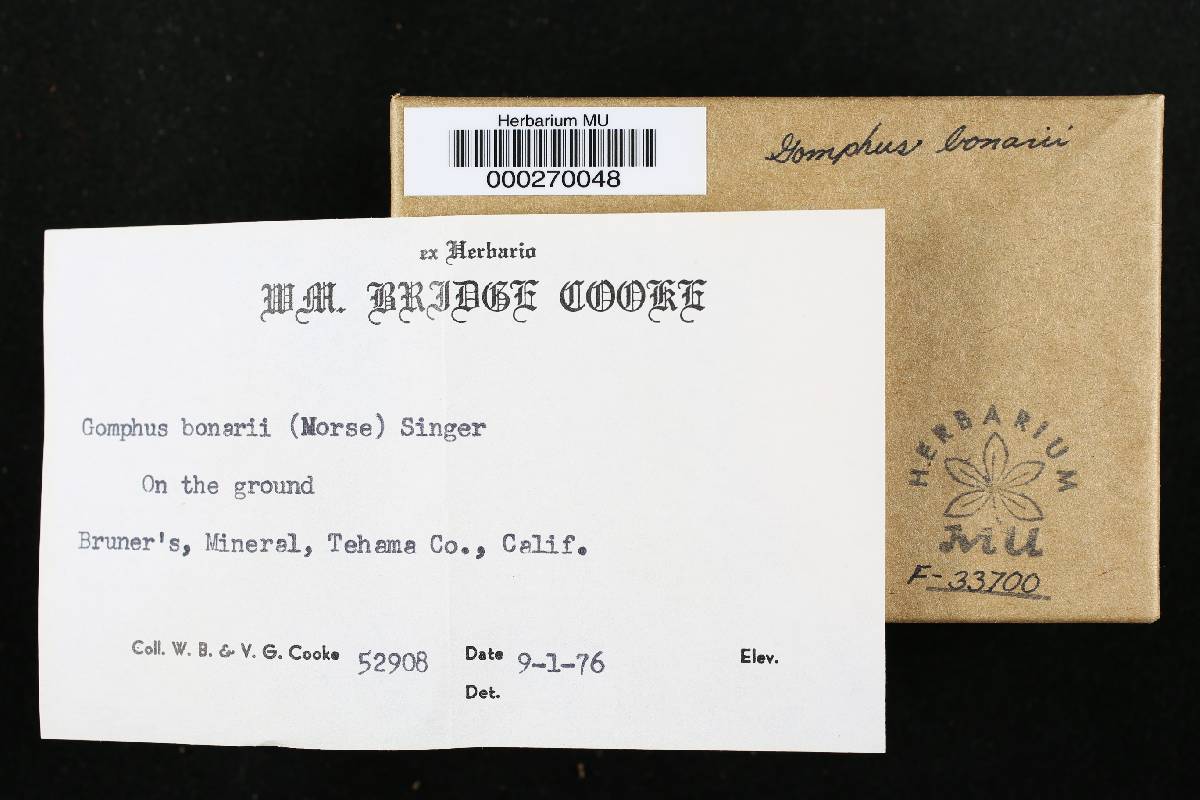 Herbarium MU
000270048
Gomphus bonarii
ex Herbario
WM. BRIDGE COOKE
Gomphus bonarii (Morse) Singer
On the ground
Bruner's, Mineral, Tehama Co., Calif.
Coll. W. B. & V. G. Cooke 52908 Date 9-1-76 Elev.
Det.
HERBARIUM
MU
F-33700